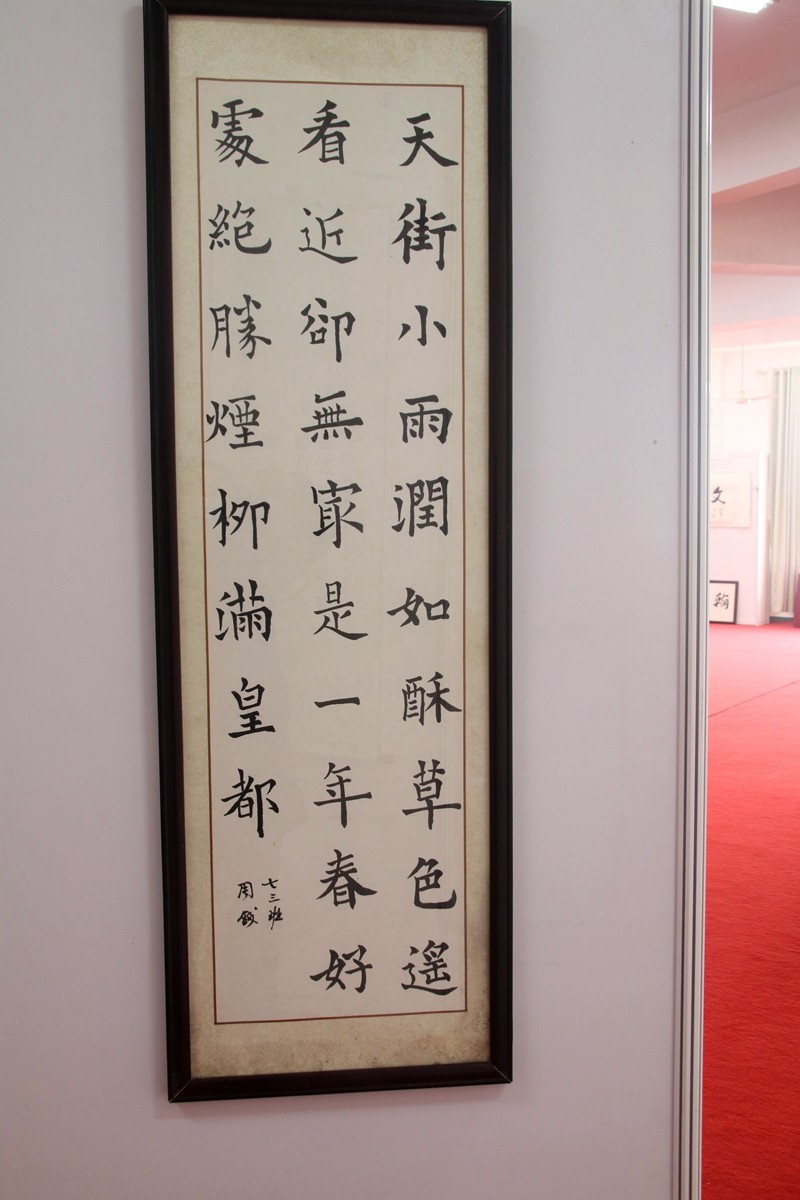 天街小雨潤如酥草色遙
看近卻無㝡是一年春好
處絶勝煙柳滿皇都
七三班
周
文
翰